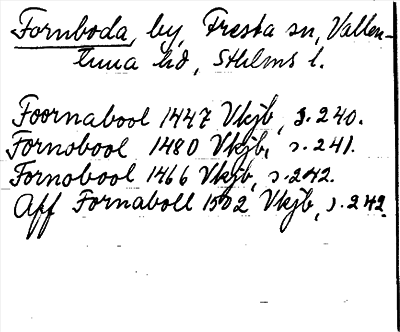 Fornboda, by, Fresta sn, Vallen-
tuna hd, Sthlms l.
Foornabool 1447 Vkjb, s. 240.
Fornobool 1480 Vkjb, s. 241.
Fornobool 1466 Vkjb, s. 242.
Aff Fornaboll 1502 Vkjb, s. 242.